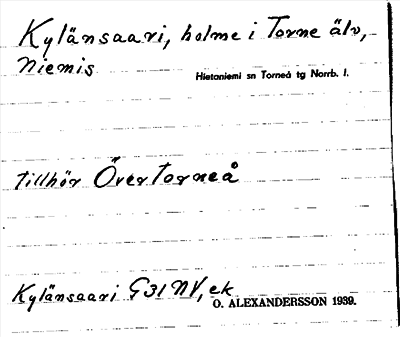 Kylänsaari, holme i Torne älv,
Niemis
Hietaniemi sn Torneå tg Norrb. l.
tillhör Övertorneå
Kylänsaari G31 NV, ek.
O. ALEXANDERSSON 1939.